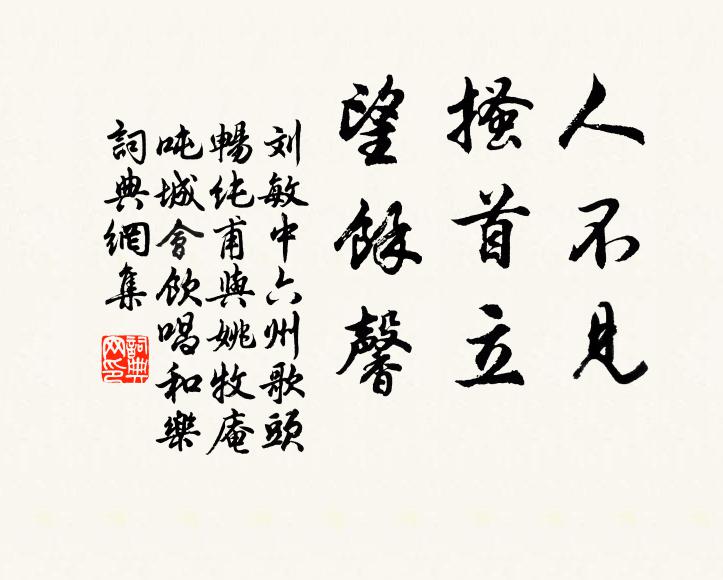 人不見
搔首立
望餘馨
刘敏中六州歌頭
暢純甫與姚牧庵
吨城會飲唱和樂
詞典網集
詞典网印